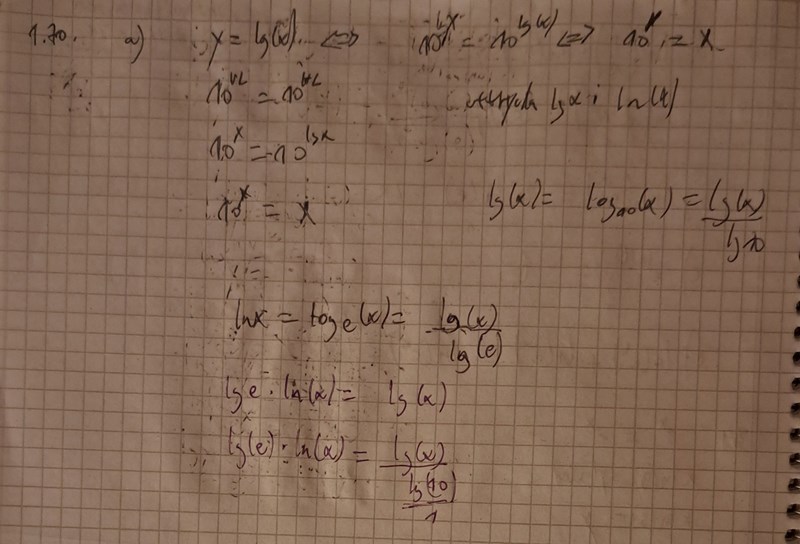 1.70. a) y = lg(x) ⇔ 10^y = 10^lg(x) ⇔ 10^y = x
10^VL = 10^HL
lg x i ln(x)
10^x = 10^lg x
lg(x) = log₁₀(x) = lg(x)/lg 10
10^x = x
ln x = log e (x) = lg(x)/lg(e)
lg e · ln(x) = lg(x)
lg(e) · ln(x) = lg(x)/lg(10)
1